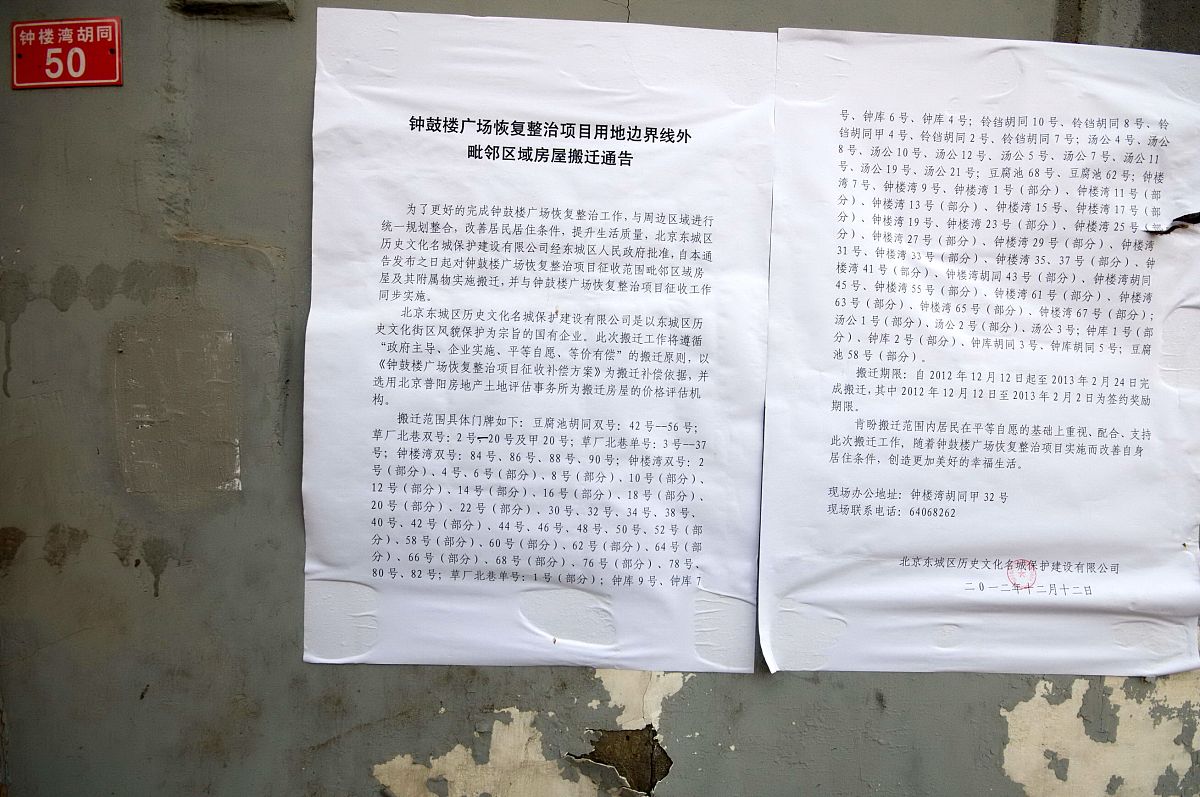 钟楼湾胡同
50
钟鼓楼广场恢复整治项目用地边界线外
毗邻区域房屋搬迁通告
为了更好的完成钟鼓楼广场恢复整治工作，与周边区域进行
统一规划整合，改善居民居住条件，提升生活质量，北京东城区
历史文化名城保护建设有限公司经东城区人民政府批准，自本通
告发布之日起对钟鼓楼广场恢复整治项目征收范围毗邻区域房
屋及其附属物实施搬迁，并与钟鼓楼广场恢复整治项目征收工作
同步实施。
北京东城区历史文化名城保护建设有限公司是以东城区历
史文化街区风貌保护为宗旨的国有企业。此次搬迁工作将遵循
“政府主导、企业实施、平等自愿、等价有偿”的搬迁原则，以
《钟鼓楼广场恢复整治项目征收补偿方案》为搬迁补偿依据，并
选用北京普阳房地产土地评估事务所为搬迁房屋的价格评估机
构。
搬迁范围具体门牌如下：豆腐池胡同双号：42号--56号；
草厂北巷双号：2号--20号及甲20号；草厂北巷单号：3号--37
号；钟楼湾双号：84号、86号、88号、90号；钟楼湾双号：2
号（部分）、4号、6号（部分）、8号（部分）、10号（部分）、
12号（部分）、14号（部分）、16号（部分）、18号（部分）、
20号（部分）、22号（部分）、30号、32号、34号、38号、
40号、42号（部分）、44号、46号、48号、50号、52号（部
分）、58号（部分）、60号（部分）、62号（部分）、64号（部
分）、66号（部分）、68号（部分）、76号（部分）、78号、
80号、82号；草厂北巷单号：1号（部分）；钟库9号、钟库7
号、钟库6号、钟库4号；铃铛胡同10号、铃铛胡同8号、铃
铛胡同甲4号、铃铛胡同2号、铃铛胡同7号；汤公4号、汤公
8号、汤公10号、汤公12号、汤公5号、汤公7号、汤公11
号、汤公19号、汤公21号；豆腐池68号、豆腐池62号；钟楼
湾7号、钟楼湾9号、钟楼湾1号（部分）、钟楼湾11号（部
分）、钟楼湾13号（部分）、钟楼湾15号、钟楼湾17号（部
分）、钟楼湾19号、钟楼湾23号（部分）、钟楼湾25号（部
分）、钟楼湾27号（部分）、钟楼湾29号（部分）、钟楼湾
31号、钟楼湾33号（部分）、钟楼湾35、37号（部分）、钟
楼湾41号（部分）、钟楼湾胡同43号（部分）、钟楼湾胡同
45号、钟楼湾55号（部分）、钟楼湾61号（部分）、钟楼湾
63号（部分）、钟楼湾65号（部分）、钟楼湾67号（部分）；
汤公1号（部分）、汤公2号（部分）、汤公3号；钟库1号（部
分）、钟库2号（部分）、钟库胡同3号、钟库胡同5号；豆腐
池58号（部分）。
搬迁期限：自2012年12月12日起至2013年2月24日完
成搬迁，其中2012年12月12日至2013年2月2日为签约奖励
期限。
肯盼搬迁范围内居民在平等自愿的基础上重视、配合、支持
此次搬迁工作，随着钟鼓楼广场恢复整治项目实施而改善自身
居住条件，创造更加美好的幸福生活。
现场办公地址：钟楼湾胡同甲32号
现场联系电话：64068262
北京东城区历史文化名城保护建设有限公司
二0一二年十二月十二日